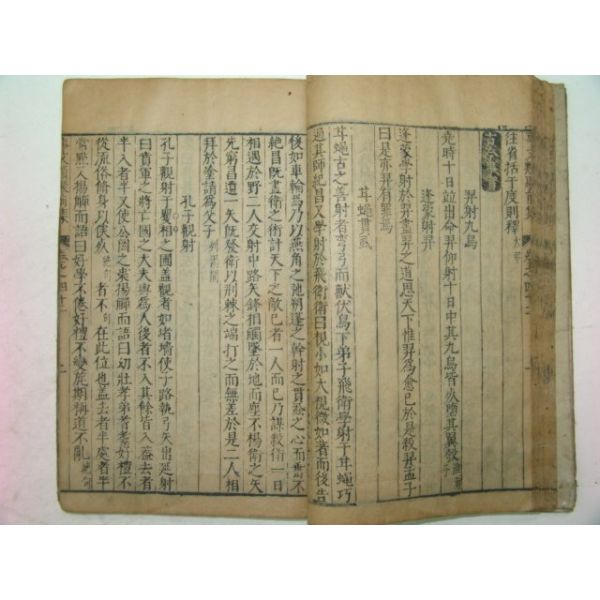 往省括于度則釋
古今事實
羿射九烏
堯時十日竝出命羿仰射十日中其九烏皆死墮其翼
逢蒙射羿
逢蒙學射於羿盡羿之道思天下惟羿爲愈已於是殺羿孟子
曰是亦羿有罪焉
耳蠅貫虱
耳蠅古之善射者彎弓而獸伏鳥下弟子飛衛學射于耳蠅巧
過其師紀昌又學射於飛衛衛曰視小如大視微如著而後告
後如車輪焉乃以燕角之弧朔蓬之幹射之貫虱之心而懸不
絶昌旣盡衛之術計天下之敵已者一人而已乃謀殺衛一日
相遇於野二人交射中路矢鋒相觸墜於地而塵不揚衛之矢
先窮昌遺一矢旣發衛以荆棘之端打之而無差於是二人相
拜於塗請爲父子
孔子觀射
孔子觀射于矍相之圃蓋觀者如堵墻使子路執弓矢出延射
曰賁軍之將亡國之大夫與爲人後者不入其餘皆入蓋去者
半入者半又使公罔之裘揚觶而語曰幼壯孝弟耆耋好禮不
從流俗脩身以俟死者不在此位也蓋去者半處者半
點揚觶而語曰好學不倦好禮不變旄期稱道不亂